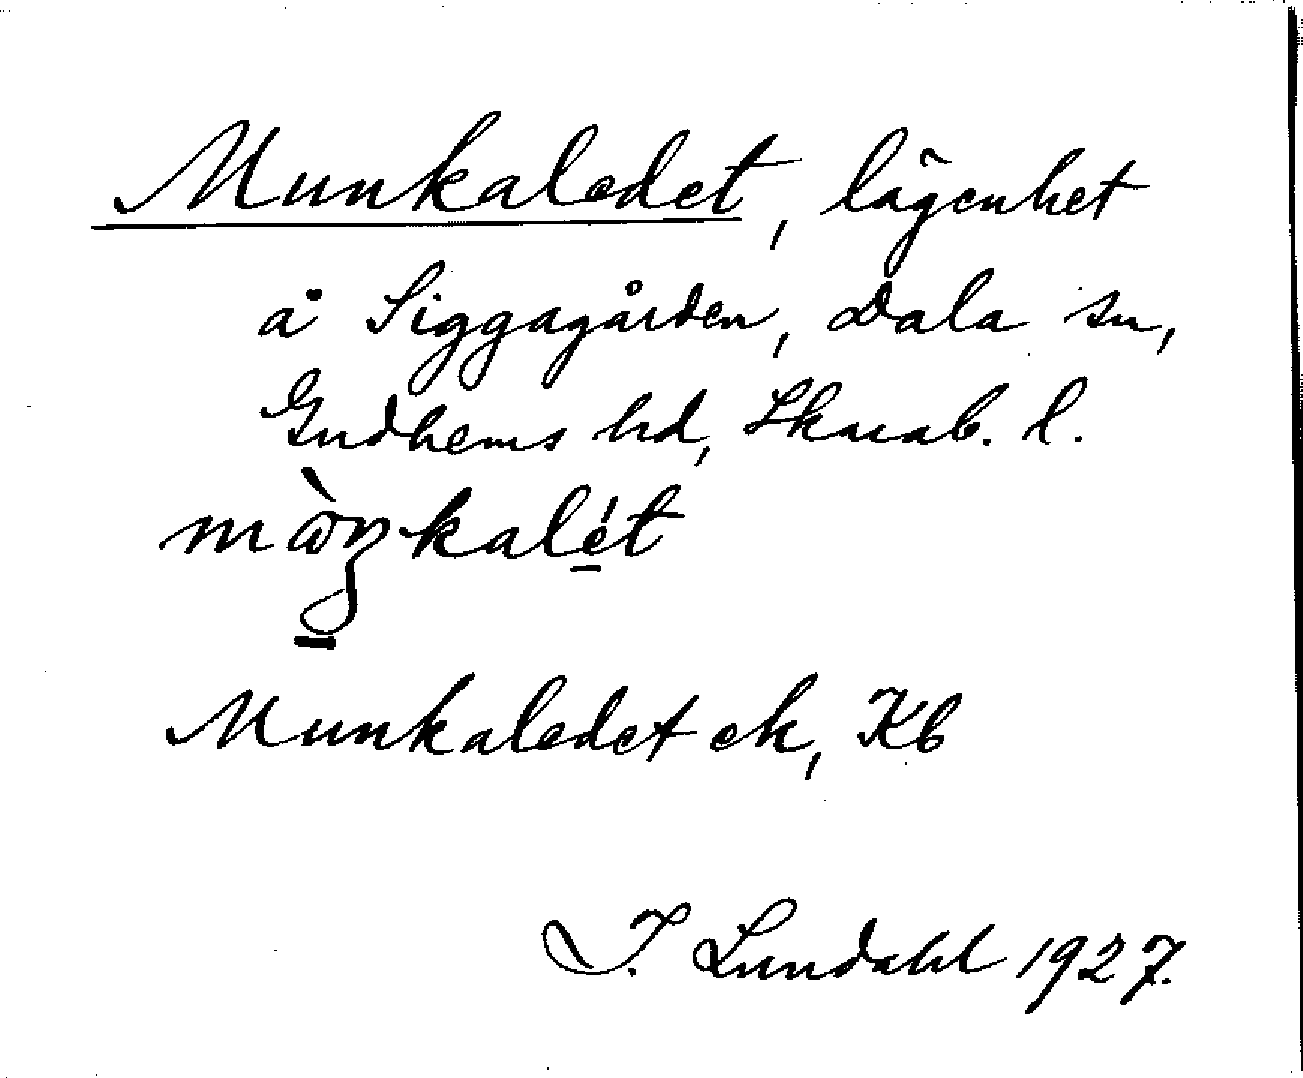 Munkaledet, lägenhet
å Siggagården, Dala sn,
Gudhems hd, Skarab. l.
mòŋkalét
Munkaledet ek, Kb
I. Lundahl 1927.